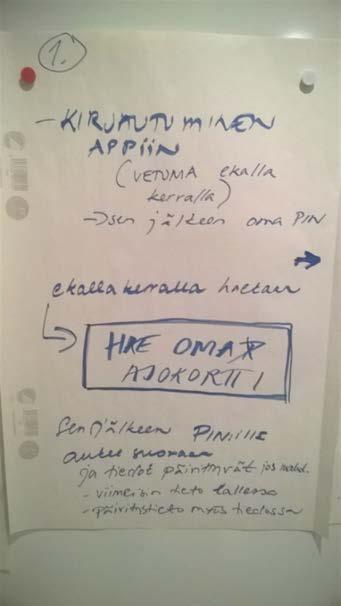 1.
- KIRJAUTUMINEN
APPIIN
(VETUMA ekalla
kerralla)
→ sen jälkeen oma PIN
→
ekalla kerralla haetaan
HAE OMA
AJOKORTTI
Sen jälkeen PINillä
aukee suoraan
ja tiedot päivittyvät jos mahd.
- viimeisin tieto tallessa
- päivitystieto myös tiedossa